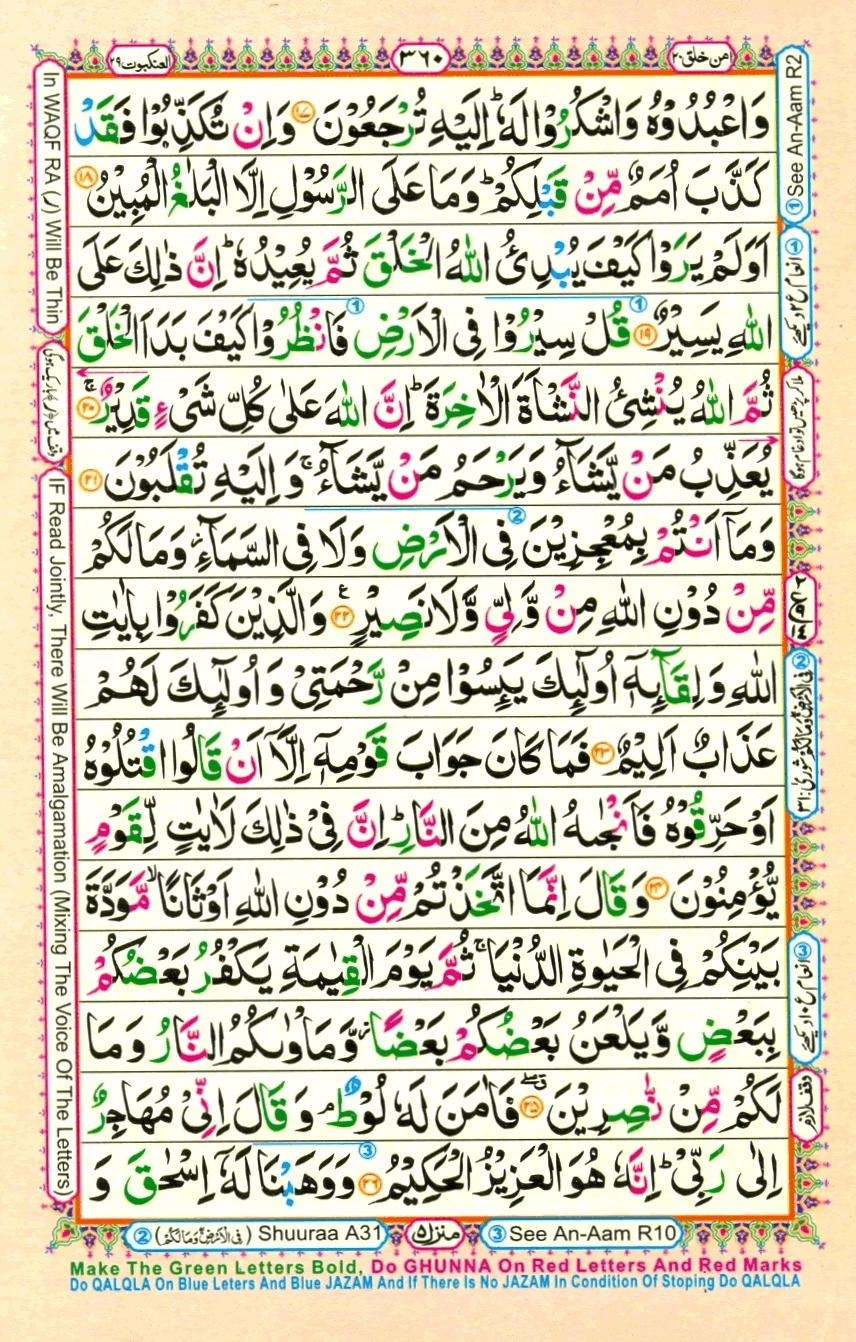 امن خلق ۲۰
۳۶۰
العنكبوت ۲۹
وَاعْبُدُوْهُ وَاشْكُرُوْا لَهٗ ؕ اِلَيْهِ تُرْجَعُوْنَ ۱۷ وَاِنْ تُكَذِّبُوْا فَقَدْ
كَذَّبَ اُمَمٌ مِّنْ قَبْلِكُمْ ؕ وَمَا عَلَى الرَّسُوْلِ اِلَّا الْبَلٰغُ الْمُبِيْنُ ۱۸
اَوَلَمْ يَرَوْا كَيْفَ يُبْدِئُ اللّٰهُ الْخَلْقَ ثُمَّ يُعِيْدُهٗ ؕ اِنَّ ذٰلِكَ عَلَى
اللّٰهِ يَسِيْرٌ ۱۹ قُلْ سِيْرُوْا فِى الْاَرْضِ فَانْظُرُوْا كَيْفَ بَدَاَ الْخَلْقَ
ثُمَّ اللّٰهُ يُنْشِئُ النَّشْاَةَ الْاٰخِرَةَ ؕ اِنَّ اللّٰهَ عَلٰى كُلِّ شَىْءٍ قَدِيْرٌ ۚ ۲۰
يُعَذِّبُ مَنْ يَّشَآءُ وَيَرْحَمُ مَنْ يَّشَآءُ ۚ وَاِلَيْهِ تُقْلَبُوْنَ ۲۱
وَمَاۤ اَنْتُمْ بِمُعْجِزِيْنَ فِى الْاَرْضِ وَلَا فِى السَّمَآءِ ؗ وَمَا لَكُمْ
مِّنْ دُوْنِ اللّٰهِ مِنْ وَّلِىٍّ وَّلَا نَصِيْرٍ ۲۲ ع وَالَّذِيْنَ كَفَرُوْا بِاٰيٰتِ
اللّٰهِ وَلِقَآئِهٖۤ اُولٰٓئِكَ يَئِسُوْا مِنْ رَّحْمَتِىْ وَاُولٰٓئِكَ لَهُمْ
عَذَابٌ اَلِيْمٌ ۲۳ فَمَا كَانَ جَوَابَ قَوْمِهٖۤ اِلَّاۤ اَنْ قَالُوا اقْتُلُوْهُ
اَوْ حَرِّقُوْهُ فَاَنْجٰىهُ اللّٰهُ مِنَ النَّارِ ؕ اِنَّ فِىْ ذٰلِكَ لَاٰيٰتٍ لِّقَوْمٍ
يُّؤْمِنُوْنَ ۲۴ وَقَالَ اِنَّمَا اتَّخَذْتُمْ مِّنْ دُوْنِ اللّٰهِ اَوْثَانًا ۙ مَّوَدَّةَ
بَيْنِكُمْ فِى الْحَيٰوةِ الدُّنْيَا ۚ ثُمَّ يَوْمَ الْقِيٰمَةِ يَكْفُرُ بَعْضُكُمْ
بِبَعْضٍ وَّيَلْعَنُ بَعْضُكُمْ بَعْضًا ؗ وَّمَاْوٰىكُمُ النَّارُ وَمَا
لَكُمْ مِّنْ نّٰصِرِيْنَ ۲۵ فَاٰمَنَ لَهٗ لُوْطٌ ۘ وَقَالَ اِنِّىْ مُهَاجِرٌ
اِلٰى رَبِّىْ ؕ اِنَّهٗ هُوَ الْعَزِيْزُ الْحَكِيْمُ ۲۶ وَوَهَبْنَا لَهٗۤ اِسْحٰقَ وَ
① See An-Aam R2
① انعام ع ۲ دیکھئے
② فی الارض وما لکم شوریٰ: ۳۱
③ انعام ع ۱۰ دیکھئے
وقف لازم
In WAQF RA (ر) Will Be Thin
IF Read Jointly, There Will Be Amalgamation (Mixing The Voice Of The Letters)
② (فِی الْاَرْضِ وَمَا لَکُمْ) Shuuraa A31
منزل ۵
③ See An-Aam R10
Make The Green Letters Bold, Do GHUNNA On Red Letters And Red Marks
Do QALQLA On Blue Leters And Blue JAZAM And If There Is No JAZAM In Condition Of Stoping Do QALQLA